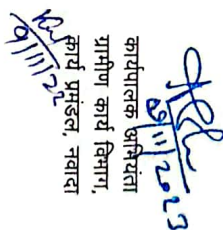 09/11/2023
कार्यपालक अभियंता
ग्रामीण कार्य विभाग,
कार्य प्रमंडल, नवादा
9/11/22